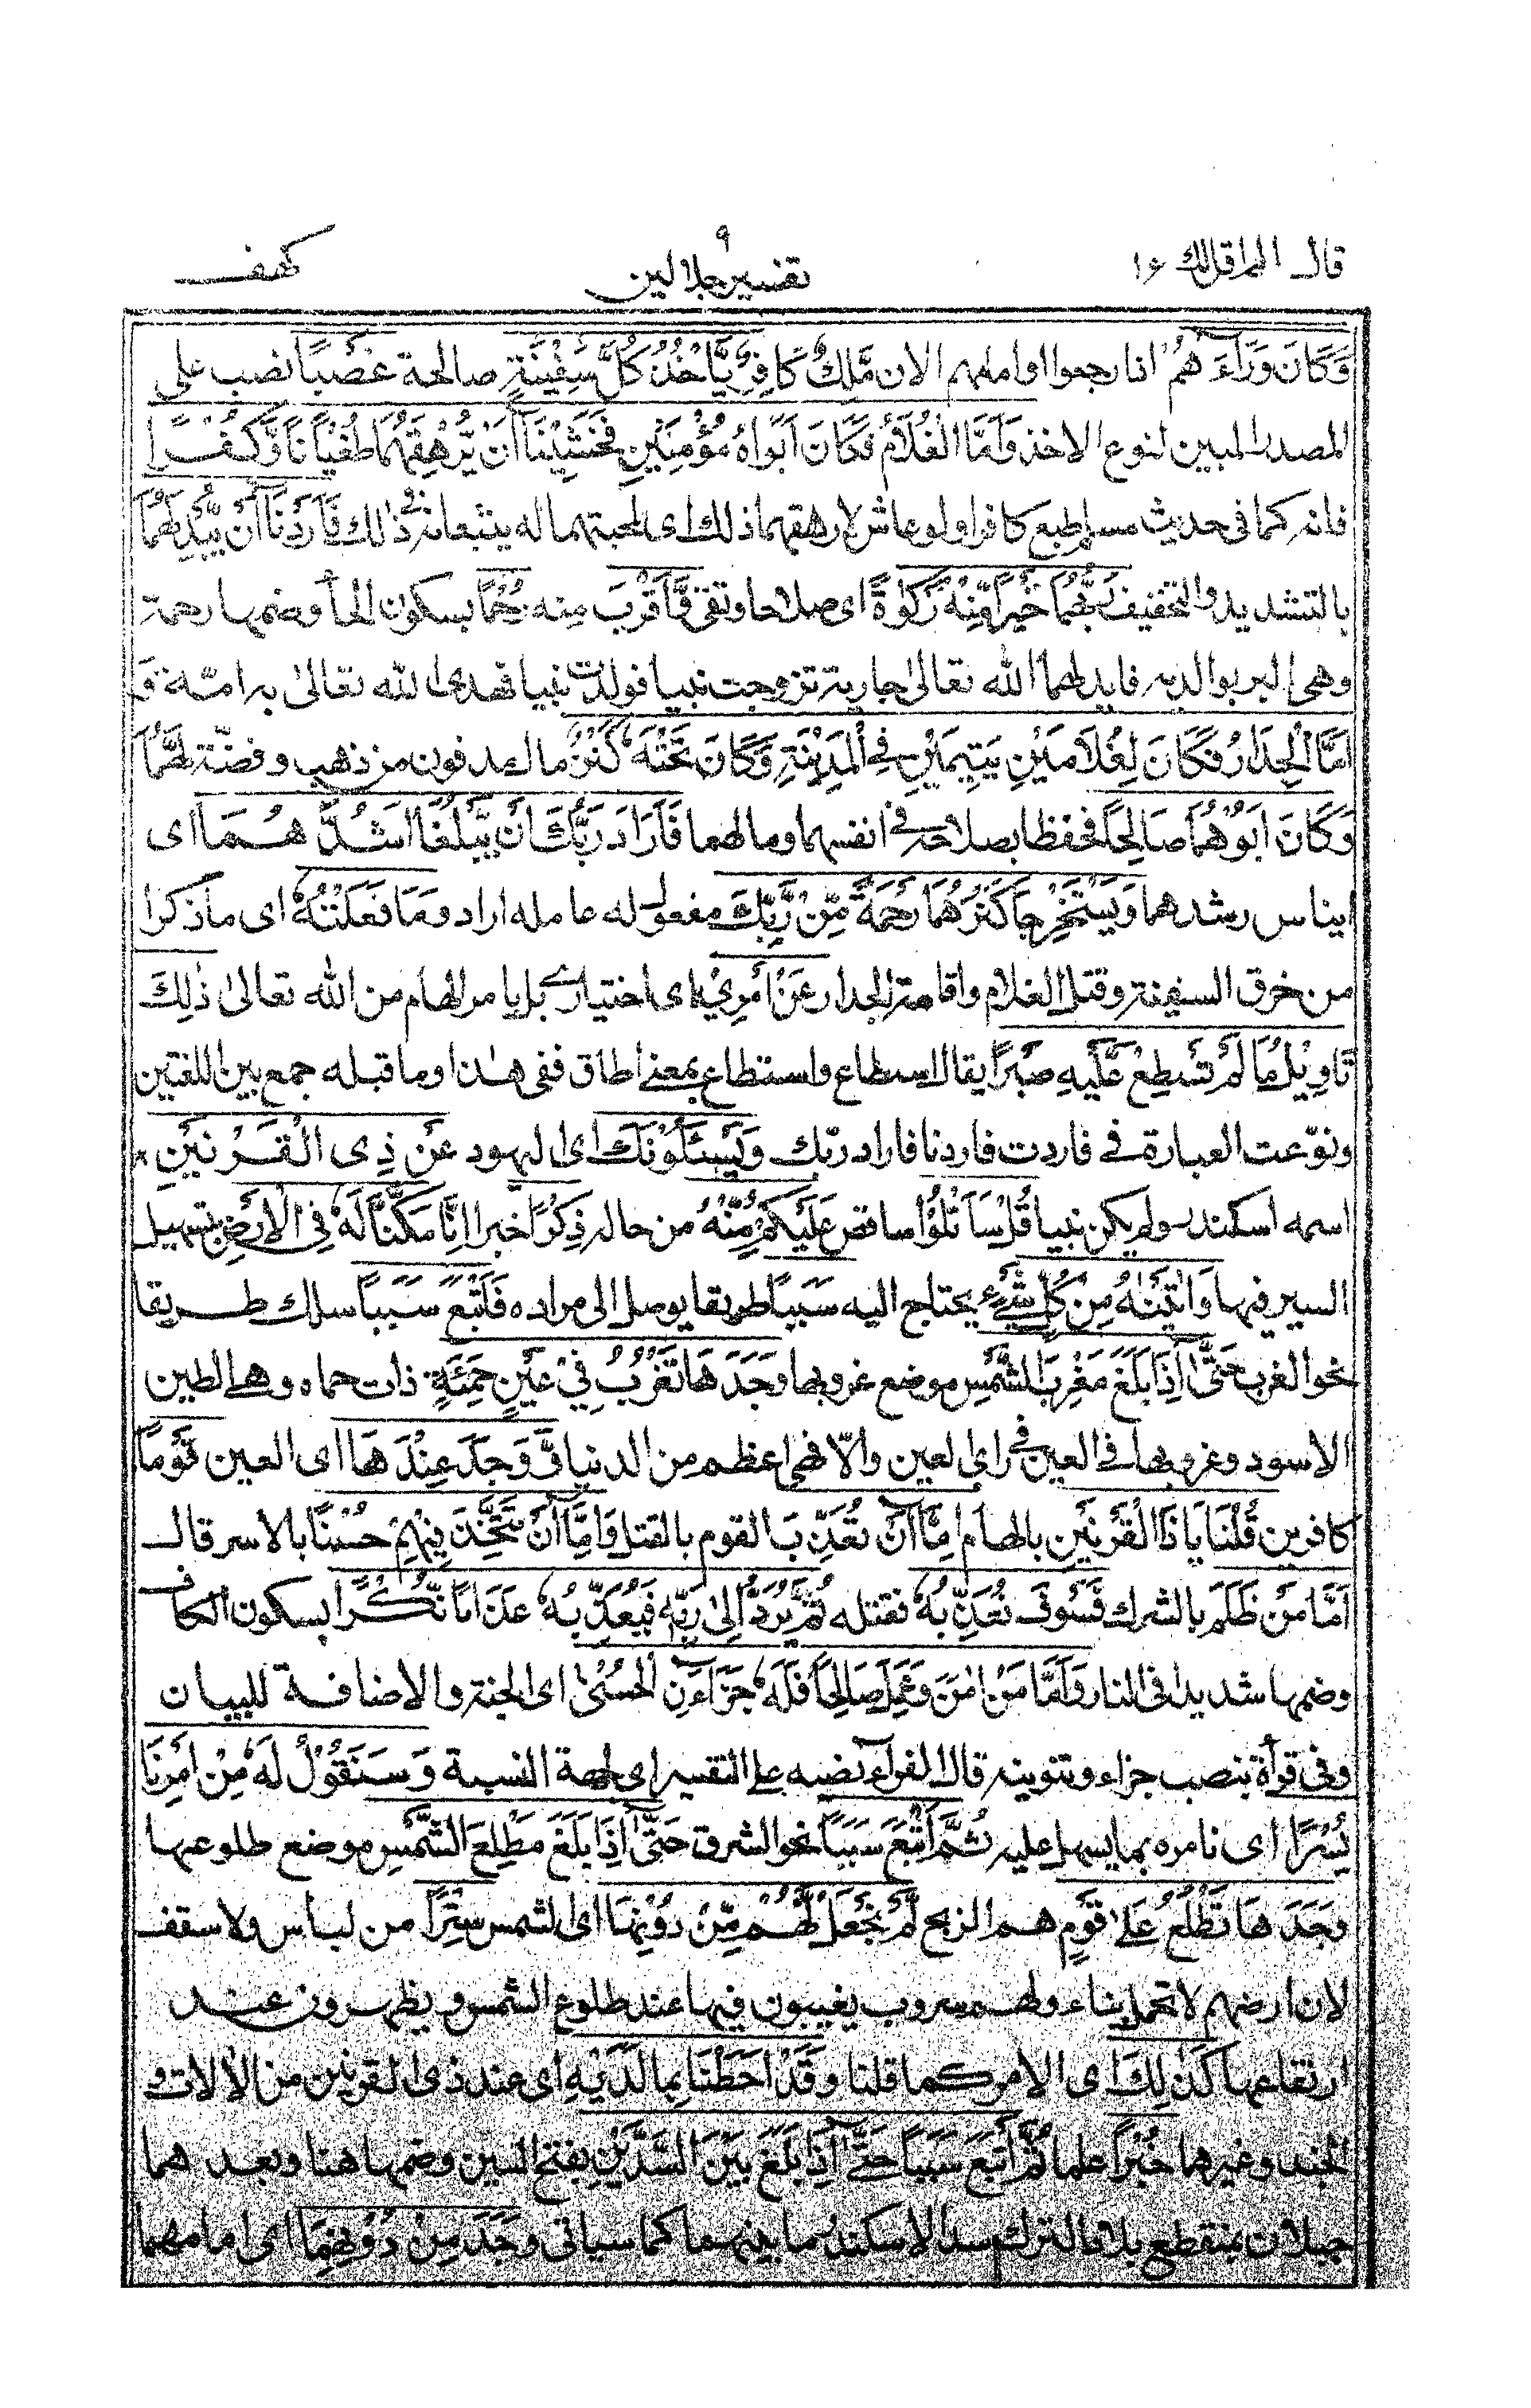 قال الم اقل لك ١٦
٩
تفسير جلالين
كهف
وَكَانَ وَرَآءَهُمْ اذا رجعوا او امامهم الان مَّلِكٌ كافر يَّاْخُذُ كُلَّ سَفِيْنَةٍ صالحة غَصْبًا نصب على
المصدر المبين لنوع الاخذ وَاَمَّا الْغُلَامُ فَكَانَ اَبَوَاهُ مُؤْمِنَيْنِ فَخَشِيْنَا اَنْ يُّرْهِقَهُمَا طُغْيَانًا وَّكُفْرًا
فانه كما فى حديث مسلم طبع كافرا ولو عاش لارهقهما ذلك اى لمحبتهما له يتبعانه فى ذلك فَاَرَدْنَا اَنْ يُّبْدِلَهُمَا
بالتشديد والتخفيف رَبُّهُمَا خَيْرًا مِّنْهُ زَكٰوةً اى صلاحا وتقى وَّاَقْرَبَ منه رُحْمًا بسكون الحاء وضمها رحمة
وهى البر بوالديه فابدلهما الله تعالىٰ جارية تزوجت نبيا فولدت نبيا فهدى الله تعالىٰ به امة وَ
اَمَّا الْجِدَارُ فَكَانَ لِغُلَامَيْنِ يَتِيْمَيْنِ فِى الْمَدِيْنَةِ وَكَانَ تَحْتَهٗ كَنْزٌ مال مدفون من ذهب وفضّة لَّهُمَا
وَكَانَ اَبُوْهُمَا صَالِحًا فحفظا بصلاحه فى انفسهما ومالهما فَاَرَادَ رَبُّكَ اَنْ يَّبْلُغَا اَشُدَّهُمَا اى
ايناس رشدهما وَيَسْتَخْرِجَا كَنْزَهُمَا رَحْمَةً مِّنْ رَّبِّكَ مفعول له عامله اراد وَمَا فَعَلْتُهٗ اى ما ذكرا
من خرق السفينة وقتل الغلام واقامة الجدار عَنْ اَمْرِىْ اى اختيارى بل بامر الهام من الله تعالىٰ ذٰلِكَ
تَاْوِيْلُ مَا لَمْ تَسْطِعْ عَّلَيْهِ صَبْرًا يقال اسطاع واستطاع بمعنى اطاق ففى هذا وما قبله جمع بين اللغتين
ونوّعت العبارة فى فاردت فاردنا فاراد ربّك وَيَسْئَلُوْنَكَ اى اليهود عَنْ ذِى الْقَرْنَيْنِ
اسمه اسكندر ولم يكن نبيا قُلْ سَاَتْلُوْا ساقص عَلَيْكُمْ مِّنْهُ من حاله ذِكْرًا خبرا اِنَّا مَكَّنَّا لَهٗ فِى الْاَرْضِ بتسهيل
السير فيها وَاٰتَيْنٰهُ مِنْ كُلِّ شَىْءٍ يحتاج اليه سَبَبًا طريقا يوصل الى مراده فَاَتْبَعَ سَبَبًا سلك طريقا
نحو الغرب حَتّٰى اِذَا بَلَغَ مَغْرِبَ الشَّمْسِ موضع غروبها وَجَدَهَا تَغْرُبُ فِىْ عَيْنٍ حَمِئَةٍ ذات حماه وهى الطين
الاسود وغروبها فى العين فى راى العين والّا فهى اعظم من الدنيا وَّوَجَدَ عِنْدَهَا اى العين قَوْمًا
كافرين قُلْنَا يَا ذَا الْقَرْنَيْنِ بالهام اِمَّا اَنْ تُعَذِّبَ القوم بالقتل وَاِمَّا اَنْ تَتَّخِذَ فِيْهِمْ حُسْنًا بالاسر قال
اَمَّا مَنْ ظَلَمَ بالشرك فَسَوْفَ نُعَذِّبُهٗ نقتله ثُمَّ يُرَدُّ اِلٰى رَبِّهٖ فَيُعَذِّبُهٗ عَذَابًا نُّكْرًا بسكون الكاف
وضمها شديدا فى النار وَاَمَّا مَنْ اٰمَنَ وَعَمِلَ صَالِحًا فَلَهٗ جَزَآءَنِ الْحُسْنٰى اى الجنة والاضافة للبيان
وفى قرأة بنصب جزاء وتنوينه قال الفراء نصبه على التفسير اى لجهة النسبة وَسَنَقُوْلُ لَهٗ مِنْ اَمْرِنَا
يُسْرًا اى نامره بما يسهل عليه ثُمَّ اَتْبَعَ سَبَبًا نحو الشرق حَتّٰى اِذَا بَلَغَ مَطْلِعَ الشَّمْسِ موضع طلوعها
وَجَدَهَا تَطْلُعُ عَلٰى قَوْمٍ هم الزنج لَّمْ نَجْعَلْ لَّهُمْ مِّنْ دُوْنِهَا اى الشمس سِتْرًا من لباس ولا سقف
لان ارضهم لا تحمل بناء ولهم سروب يغيبون فيها عند طلوع الشمس ويظهرون عند
ارتفاعها كَذٰلِكَ اى الامر كما قلنا وَقَدْ اَحَطْنَا بِمَا لَدَيْهِ اى عند ذى القرنين من الالات و
الجند وغيرهما خُبْرًا علما ثُمَّ اَتْبَعَ سَبَبًا حَتّٰى اِذَا بَلَغَ بَيْنَ السَّدَّيْنِ بفتح السين وضمها هنا وبعدهما
جبلان بمنقطع بلاد الترك سد الاسكندر ما بينهما كما سياتى وَجَدَ مِنْ دُوْنِهِمَا اى امامهما